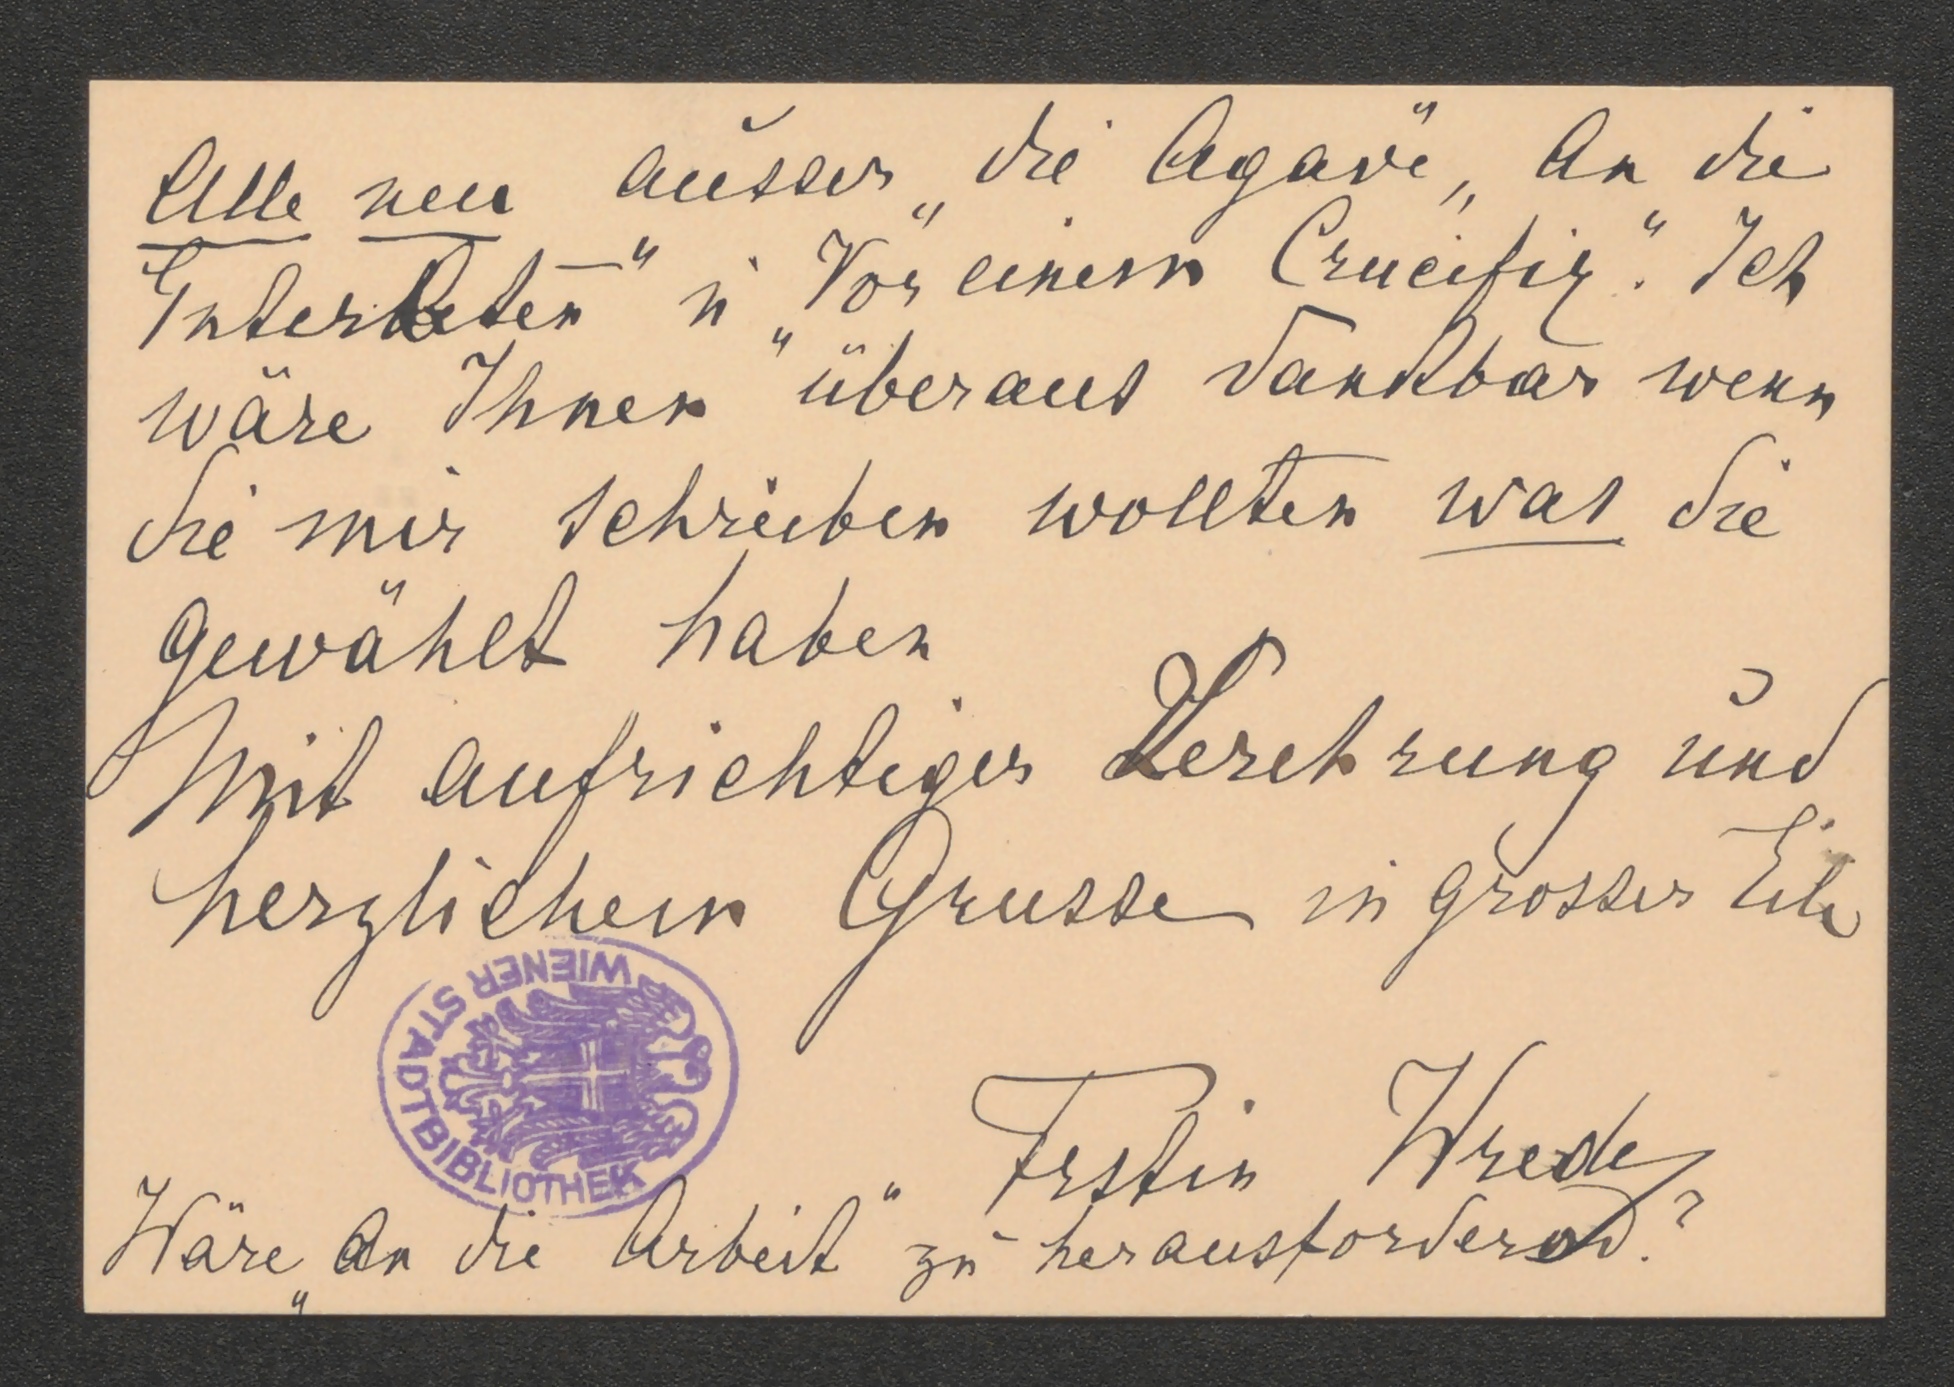 Alle neu ausser „die Agave", „An die
Enterbten" u „Vor einem Crucifix". Ich
wäre Ihnen überaus dankbar wenn
Sie mir schreiben wollten was Sie
gewählt haben
Mit aufrichtiger Verehrung und
herzlichem Grusse in grosser Eile
WIENER STADTBIBLIOTHEK
Frstin Wrede
Wäre „An die Arbeit" zu herausfordernd.?